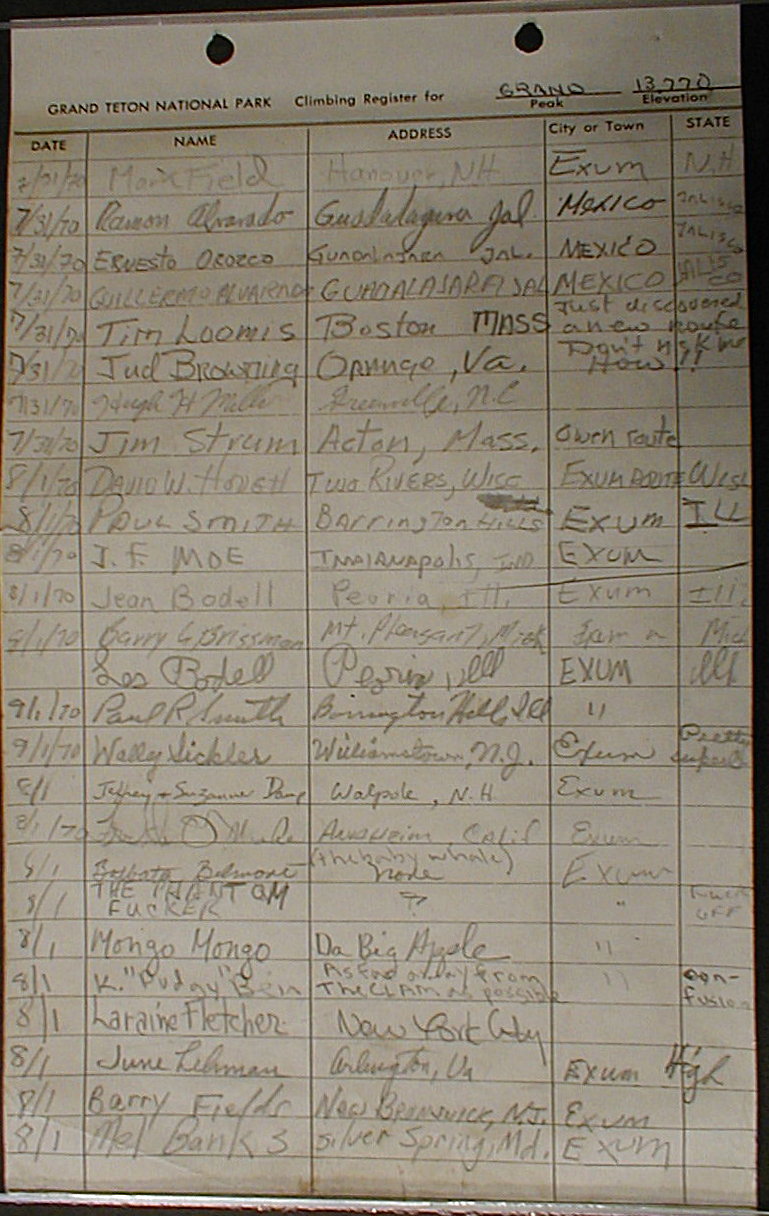 GRAND TETON NATIONAL PARK Climbing Register for GRAND 13,770
Peak Elevation
DATE NAME ADDRESS City or Town STATE
7/31/70 Mark Field Hanover, NH Exum N.H.
7/31/70 Ramon Alvarado Guadalajara Jal. MEXICO JALISCO
7/31/70 ERNESTO OROZCO GUADALAJARA JAL. MEXICO JALISCO
7/31/70 GUILLERMO ALVARADO GUADALAJARA JAL MEXICO JALISCO
7/31/70 Tim Loomis Boston MASS Just discovered a new route
7/31/70 Jud BROWNING Orange, Va. Don't ask me How!!
7/31/70 Hugh H Miller Greenville, N.C
7/30/70 Jim Strum Acton, Mass. Owen route
8/1/70 DAVID W. TWO RIVERS, WISC EXUM ROUTE WISC
8/1/70 PAUL SMITH BARRINGTON HILLS EXUM ILL
8/1/70 J. F. MOE INDIANAPOLIS, IND EXUM
8/1/70 Jean Bodell Peoria, Ill. Exum Ill.
8/1/70 Barry G Brissman Mt. Pleasant, Mich Exum Mich
Les Bodell Peoria, Ill EXUM Ill
9/1/70 Paul R Smith Barrington Hills, Ill "
9/1/70 Wally Sickler Williamstown, N.J. Exum Pretty superb
8/1 Jeffrey + Suzanne Walpole, N.H Exum
8/1/70 Anaheim Calif Exum
8/1 Belmont (the baby whale) none Exum
8/1 THE PHANTOM FUCKER ? " FUCK OFF
8/1 Mongo Mongo Da Big Apple "
8/1 K. "Pudgy" Bein As far away from THE CLAM as possible " con-fusion
8/1 Laraine Fletcher New York City
8/1 June Lehman Arlington, Va Exum High
8/1 Barry Fields New Brunswick, N.J. Exum
8/1 Mel Banks Silver Spring, Md. EXUM